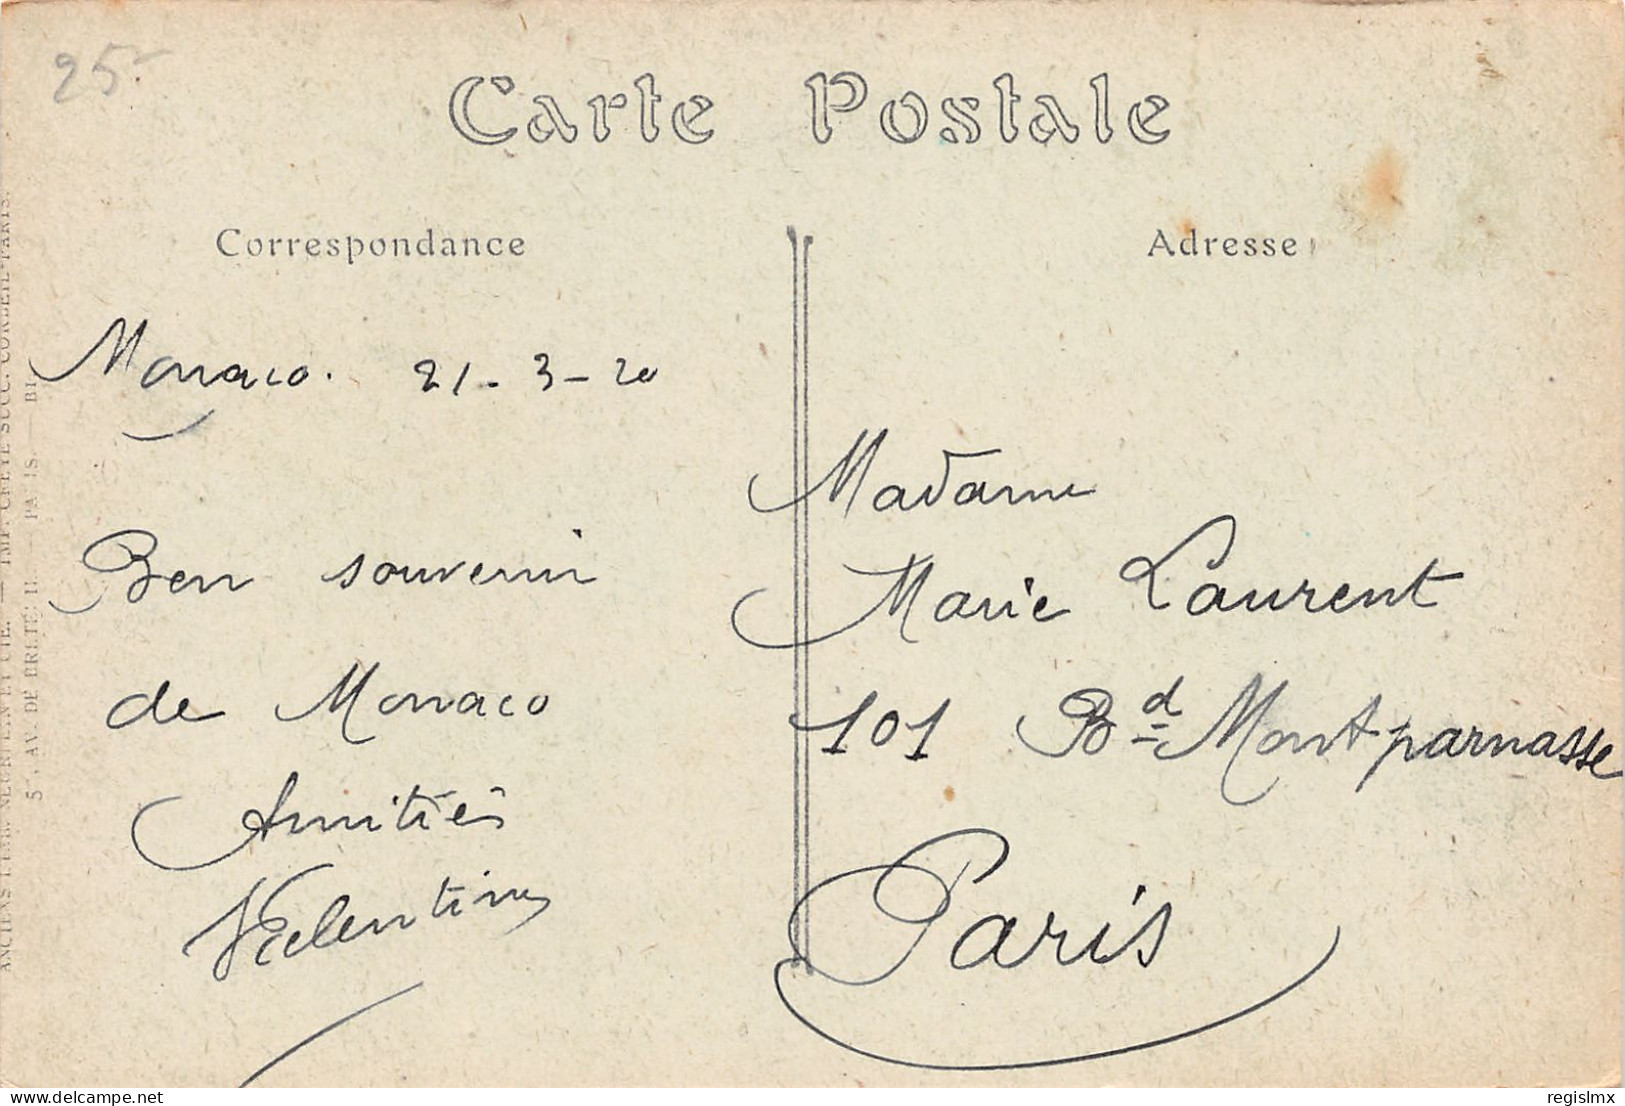 25-
Carte Postale
Correspondance
Adresse
Monaco. 21-3-20
Bon souvenir
de Monaco
Amitiés
Valentine
Madame
Marie Laurent
101 Bd Montparnasse
Paris
ANCIENS ETAB. NEURDEIN ET CIE. — IMP. CRÉTÉ SUCC. CORBEIL-PARIS.
5, AV. DE
delcampe.net
regislmx